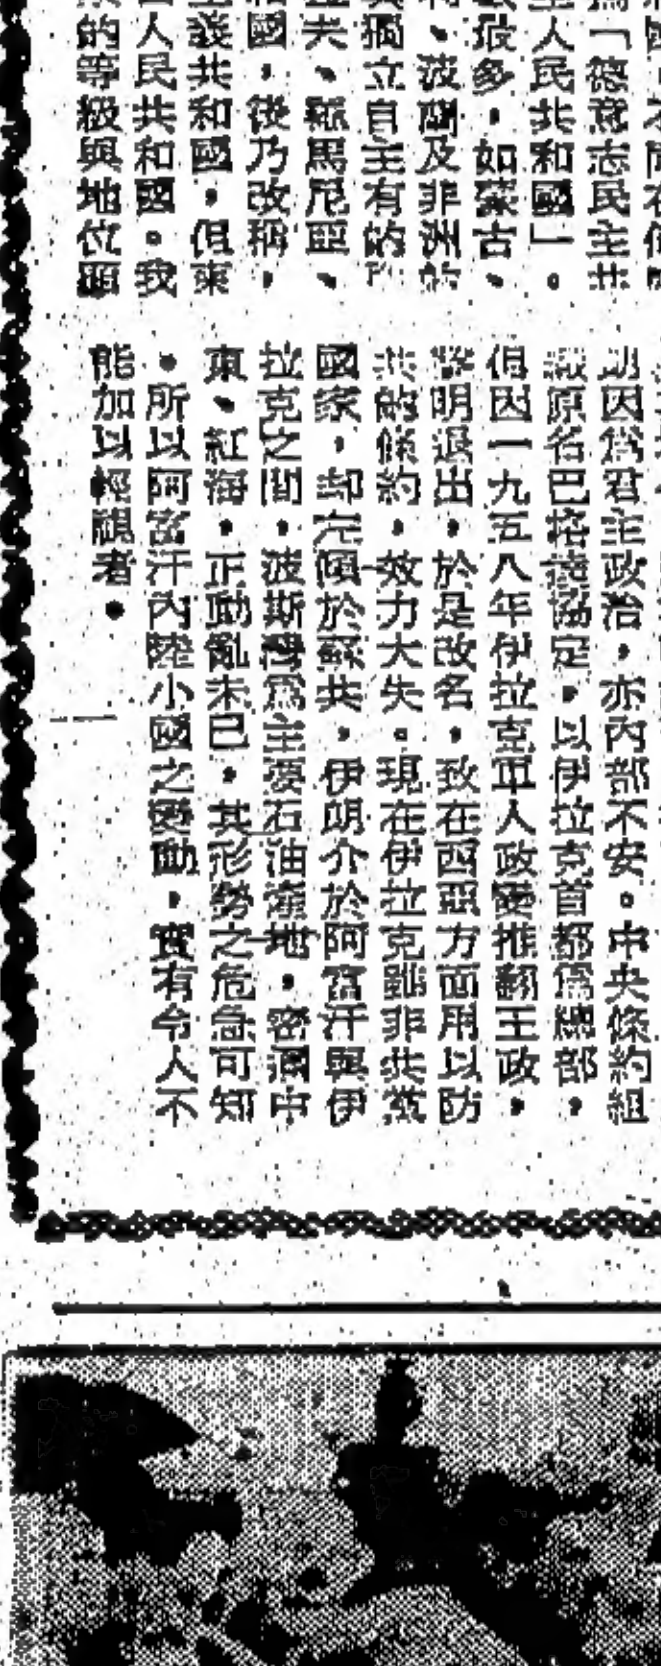 爲「德意志民主共
人民共和國」。
最多，如蒙古、
、波蘭及非洲
獨立自主有的
夫、羅馬尼亞、
國，後乃改稱，
義共和國，但東
人民共和國。我
的等級與地位
因爲君主政治，亦內部不安。中央條約組
織原名巴格達協定，以伊拉克首都爲總部，
但因一九五八年伊拉克軍人政變推翻王政，
聲明退出，於是改名，致在西亞方面用以防
共的條約，效力大失。現在伊拉克雖非共黨
國家，却左傾於蘇共，伊朗介於阿富汗與伊
拉克之間，波斯灣爲主要石油產地，密邇中
東、紅海，正動亂未已，其形勢之危急可知
，所以阿富汗內陸小國之變動，實有令人不
能加以輕視者。